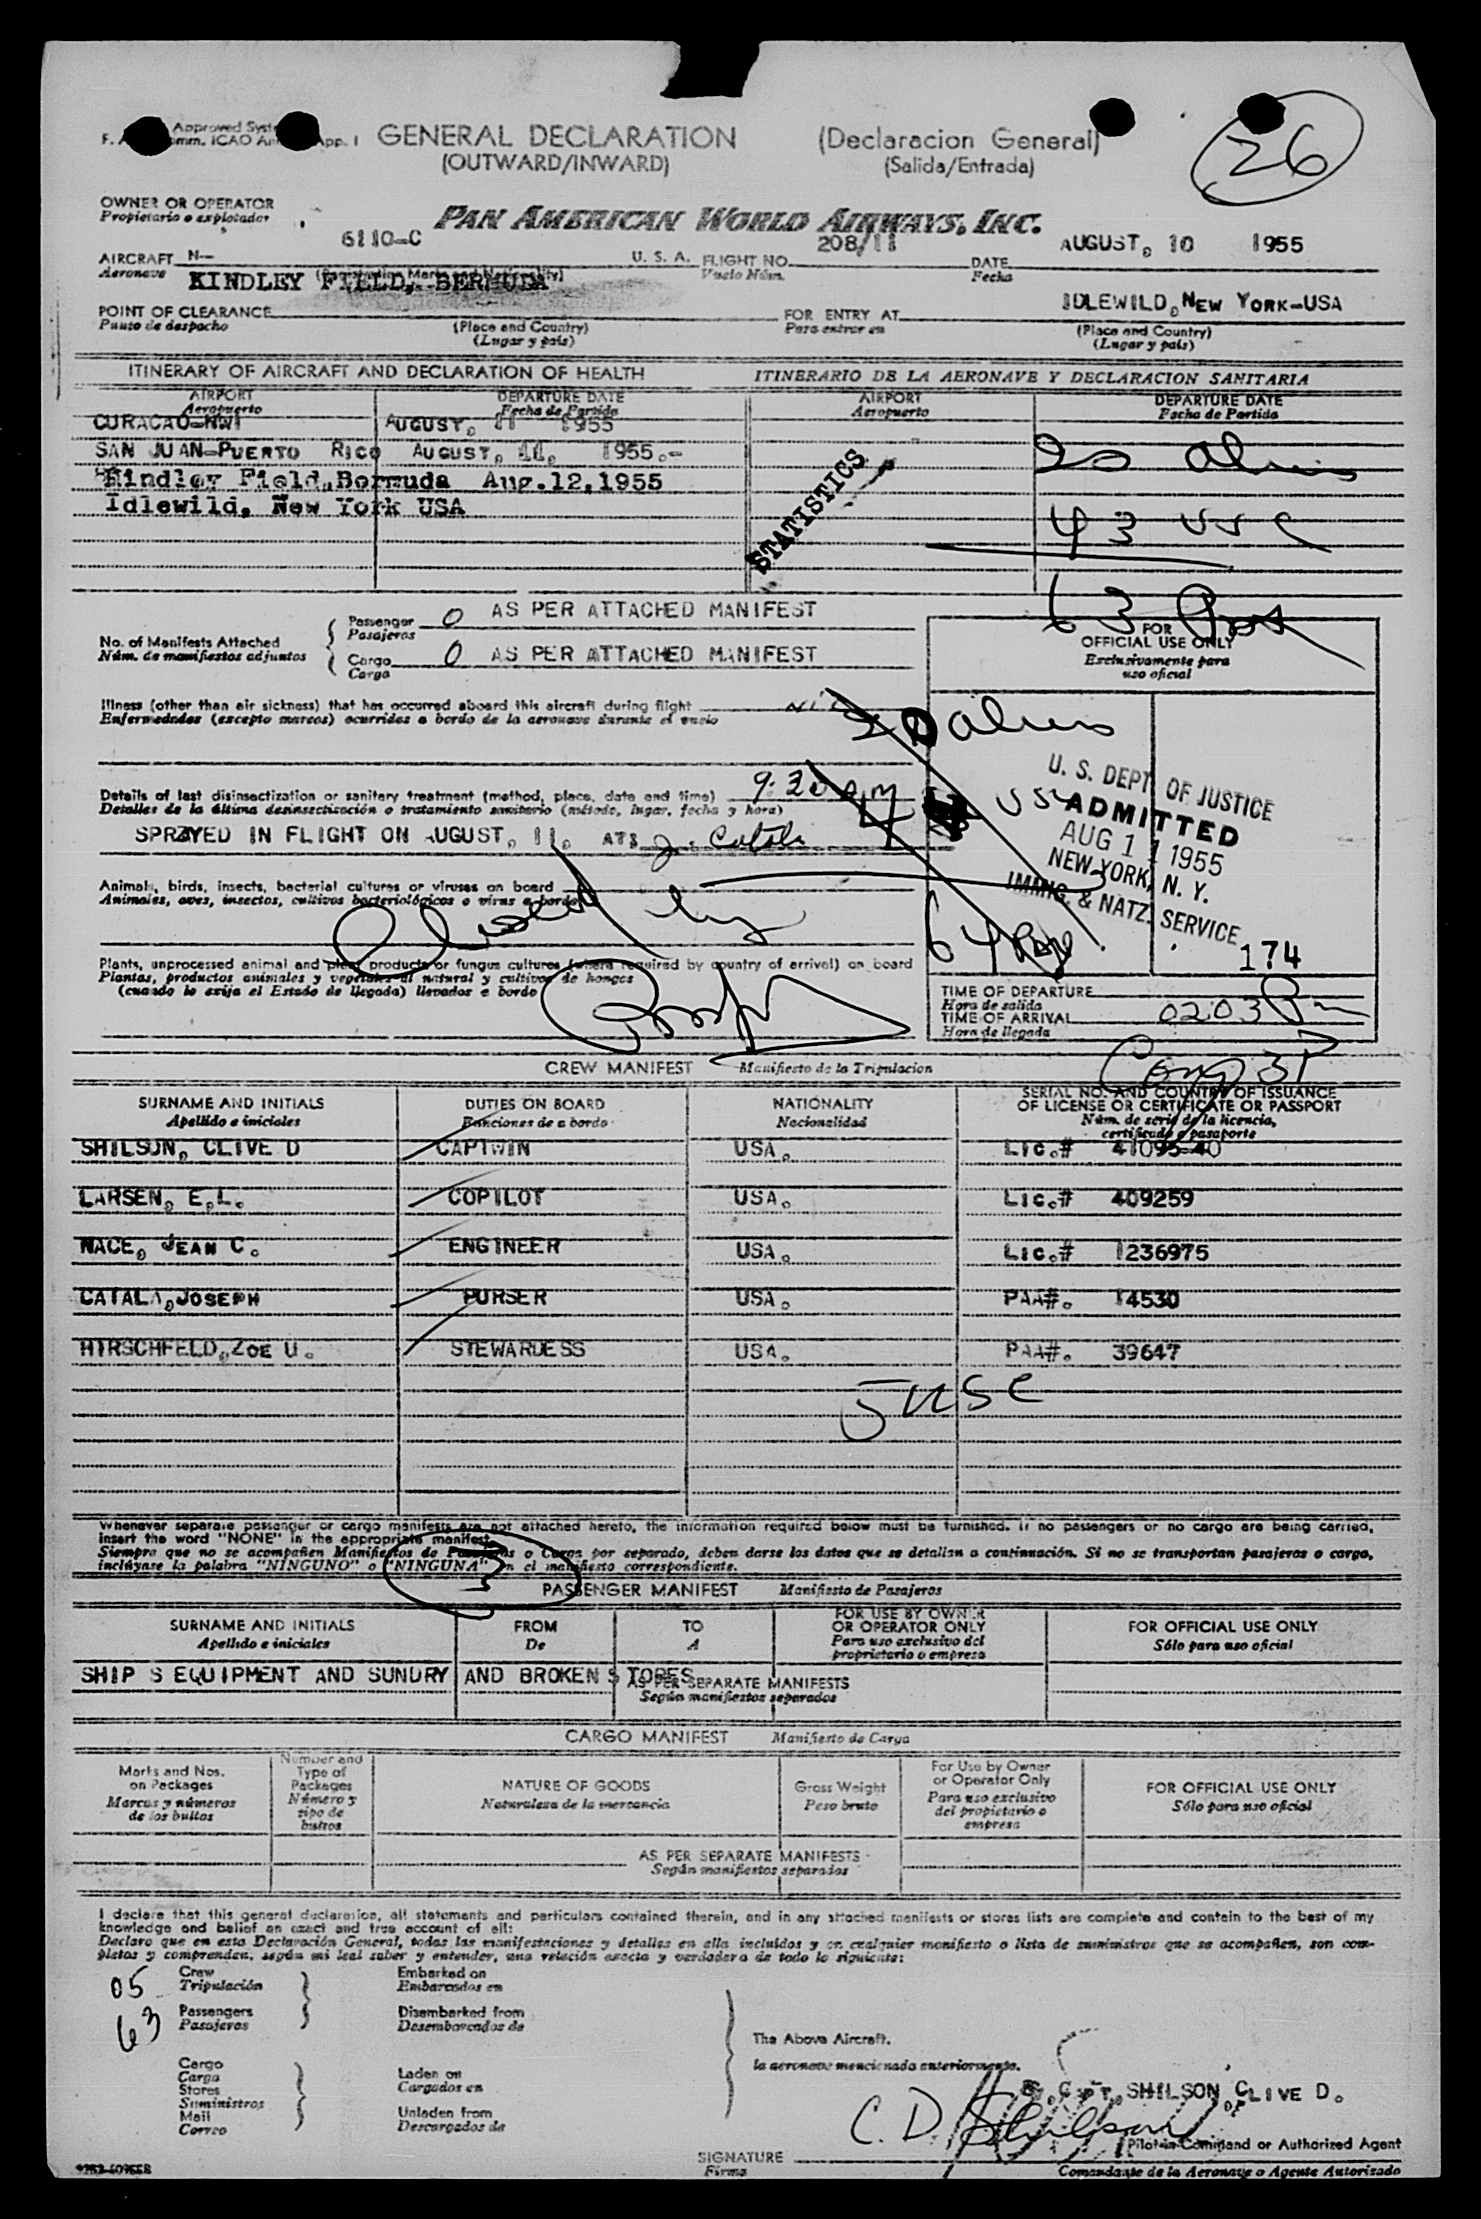 Approved Syst
F. A
omm. ICAO An
App. I
GENERAL DECLARATION (Declaracion General)
(OUTWARD/INWARD) (Salida/Entrada)
26
OWNER OR OPERATOR
Propietario o explotador
PAN AMERICAN WORLD AIRWAYS, INC.
6110-C 208/11 AUGUST, 10 1955
AIRCRAFT N-- U. S. A. FLIGHT NO. DATE
Aeronave Vuelo Núm. Fecha
KINDLEY FIELD, BERMUDA
IDLEWILD, NEW YORK-USA
POINT OF CLEARANCE FOR ENTRY AT
Punto de despacho (Place and Country) Para entrar en (Place and Country)
(Lugar y país) (Lugar y país)
ITINERARY OF AIRCRAFT AND DECLARATION OF HEALTH ITINERARIO DE LA AERONAVE Y DECLARACION SANITARIA
AIRPORT DEPARTURE DATE AIRPORT DEPARTURE DATE
Aeropuerto Fecha de Partida Aeropuerto Fecha de Partida
CURACAO-NWI AUGUST, 11 1955
SAN JUAN-PUERTO RICO AUGUST, 11, 1955.-
Kindley Field,Bermuda Aug.12,1955
Idlewild, New York USA
STATISTICS
20 Aliens
43 USC
63 Pax
No. of Manifests Attached
Núm. de manifiestos adjuntos
Passenger 0 AS PER ATTACHED MANIFEST
Pasajeros
Cargo 0 AS PER ATTACHED MANIFEST
Carga
FOR
OFFICIAL USE ONLY
Exclusivamente para
uso oficial
Illness (other than air sickness) that has occurred aboard this aircraft during flight NIL
Enfermedades (excepto mareos) ocurridas a bordo de la aeronave durante el vuelo
20 aliens
Details of last disinsectization or sanitary treatment (method, place, date and time) 9:20 am
Detalles de la última desinsectización o tratamiento sanitario (método, lugar, fecha y hora)
SPRAYED IN FLIGHT ON AUGUST, 11, AT: J. Catala
USC
U. S. DEPT. OF JUSTICE
ADMITTED
AUG 11 1955
NEW YORK, N. Y.
IMMIG. & NATZ. SERVICE
174
64 Pax
Animals, birds, insects, bacterial cultures or viruses on board
Animales, aves, insectos, cultivos bacteriológicos o virus a bordo
Plants, unprocessed animal and plant products or fungus cultures (where required by country of arrival) on board
Plantas, productos animales y vegetales al natural y cultivos de hongos
(cuando lo exija el Estado de llegada) llevados a bordo
TIME OF DEPARTURE
Hora de salida
TIME OF ARRIVAL 0203 Pm
Hora de llegada
CREW MANIFEST Manifiesto de la Tripulacion
SURNAME AND INITIALS DUTIES ON BOARD NATIONALITY SERIAL NO. AND COUNTRY OF ISSUANCE
OF LICENSE OR CERTIFICATE OR PASSPORT
Apellido e iniciales Funciones de a bordo Nacionalidad Núm. de serie de la licencia,
certificado o pasaporte
SHILSON, CLIVE D CAPTWIN USA. LIC.# 41095-40
LARSEN, E.L. COPILOT USA. LIC.# 409259
NACE, JEAN C. ENGINEER USA. LIC.# 1236975
CATALA,JOSEPH PURSER USA. PAA#. 14530
HIRSCHFELD,ZOE U. STEWARDESS USA. PAA#. 39647
5 USC
Whenever separate passenger or cargo manifests are not attached hereto, the information required below must be furnished. If no passengers or no cargo are being carried,
insert the word "NONE" in the appropriate manifest.
Siempre que no se acompañen Manifiestos de Pasajeros o Carga por separado, deben darse los datos que se detallan a continuación. Si no se transportan pasajeros o carga,
inclúyase la palabra "NINGUNO" o "NINGUNA" en el manifiesto correspondiente.
PASSENGER MANIFEST Manifiesto de Pasajeros
SURNAME AND INITIALS FROM TO FOR USE BY OWNER
OR OPERATOR ONLY FOR OFFICIAL USE ONLY
Apellido e iniciales De A Para uso exclusivo del
propietario o empresa Sólo para uso oficial
SHIP S EQUIPMENT AND SUNDRY AND BROKEN STORES
AS PER SEPARATE MANIFESTS
Según manifiestos separados
CARGO MANIFEST Manifiesto de Carga
Marks and Nos.
on Packages
Marcas y números
de los bultos
Number and
Type of
Packages
Número y
tipo de
bultos
NATURE OF GOODS
Naturaleza de la mercancía
Gross Weight
Peso bruto
For Use by Owner
or Operator Only
Para uso exclusivo
del propietario o
empresa
FOR OFFICIAL USE ONLY
Sólo para uso oficial
AS PER SEPARATE MANIFESTS
Según manifiestos separados
I declare that this general declaration, all statements and particulars contained therein, and in any attached manifests or stores lists are complete and contain to the best of my
knowledge and belief an exact and true account of all:
Declaro que en esta Declaración General, todas las manifestaciones y detalles en ella incluidos y en cualquier manifiesto o lista de suministros que se acompañen, son com-
pletos y comprenden, según mi leal saber y entender, una relación exacta y verdadera de todo lo siguiente:
05 Crew Embarked on
Tripulación Embarcados en
63 Passengers Disembarked from
Pasajeros Desembarcados de
The Above Aircraft.
la aeronave mencionada anteriormente.
Cargo
Carga Laden on
Stores Cargados en
Suministros
Mail Unladen from
Correo Descargados de
CAPT. SHILSON, CLIVE D.
C. D. Shilson
SIGNATURE Pilot-in-Command or Authorized Agent
Firma Comandante de la Aeronave o Agente Autorizado